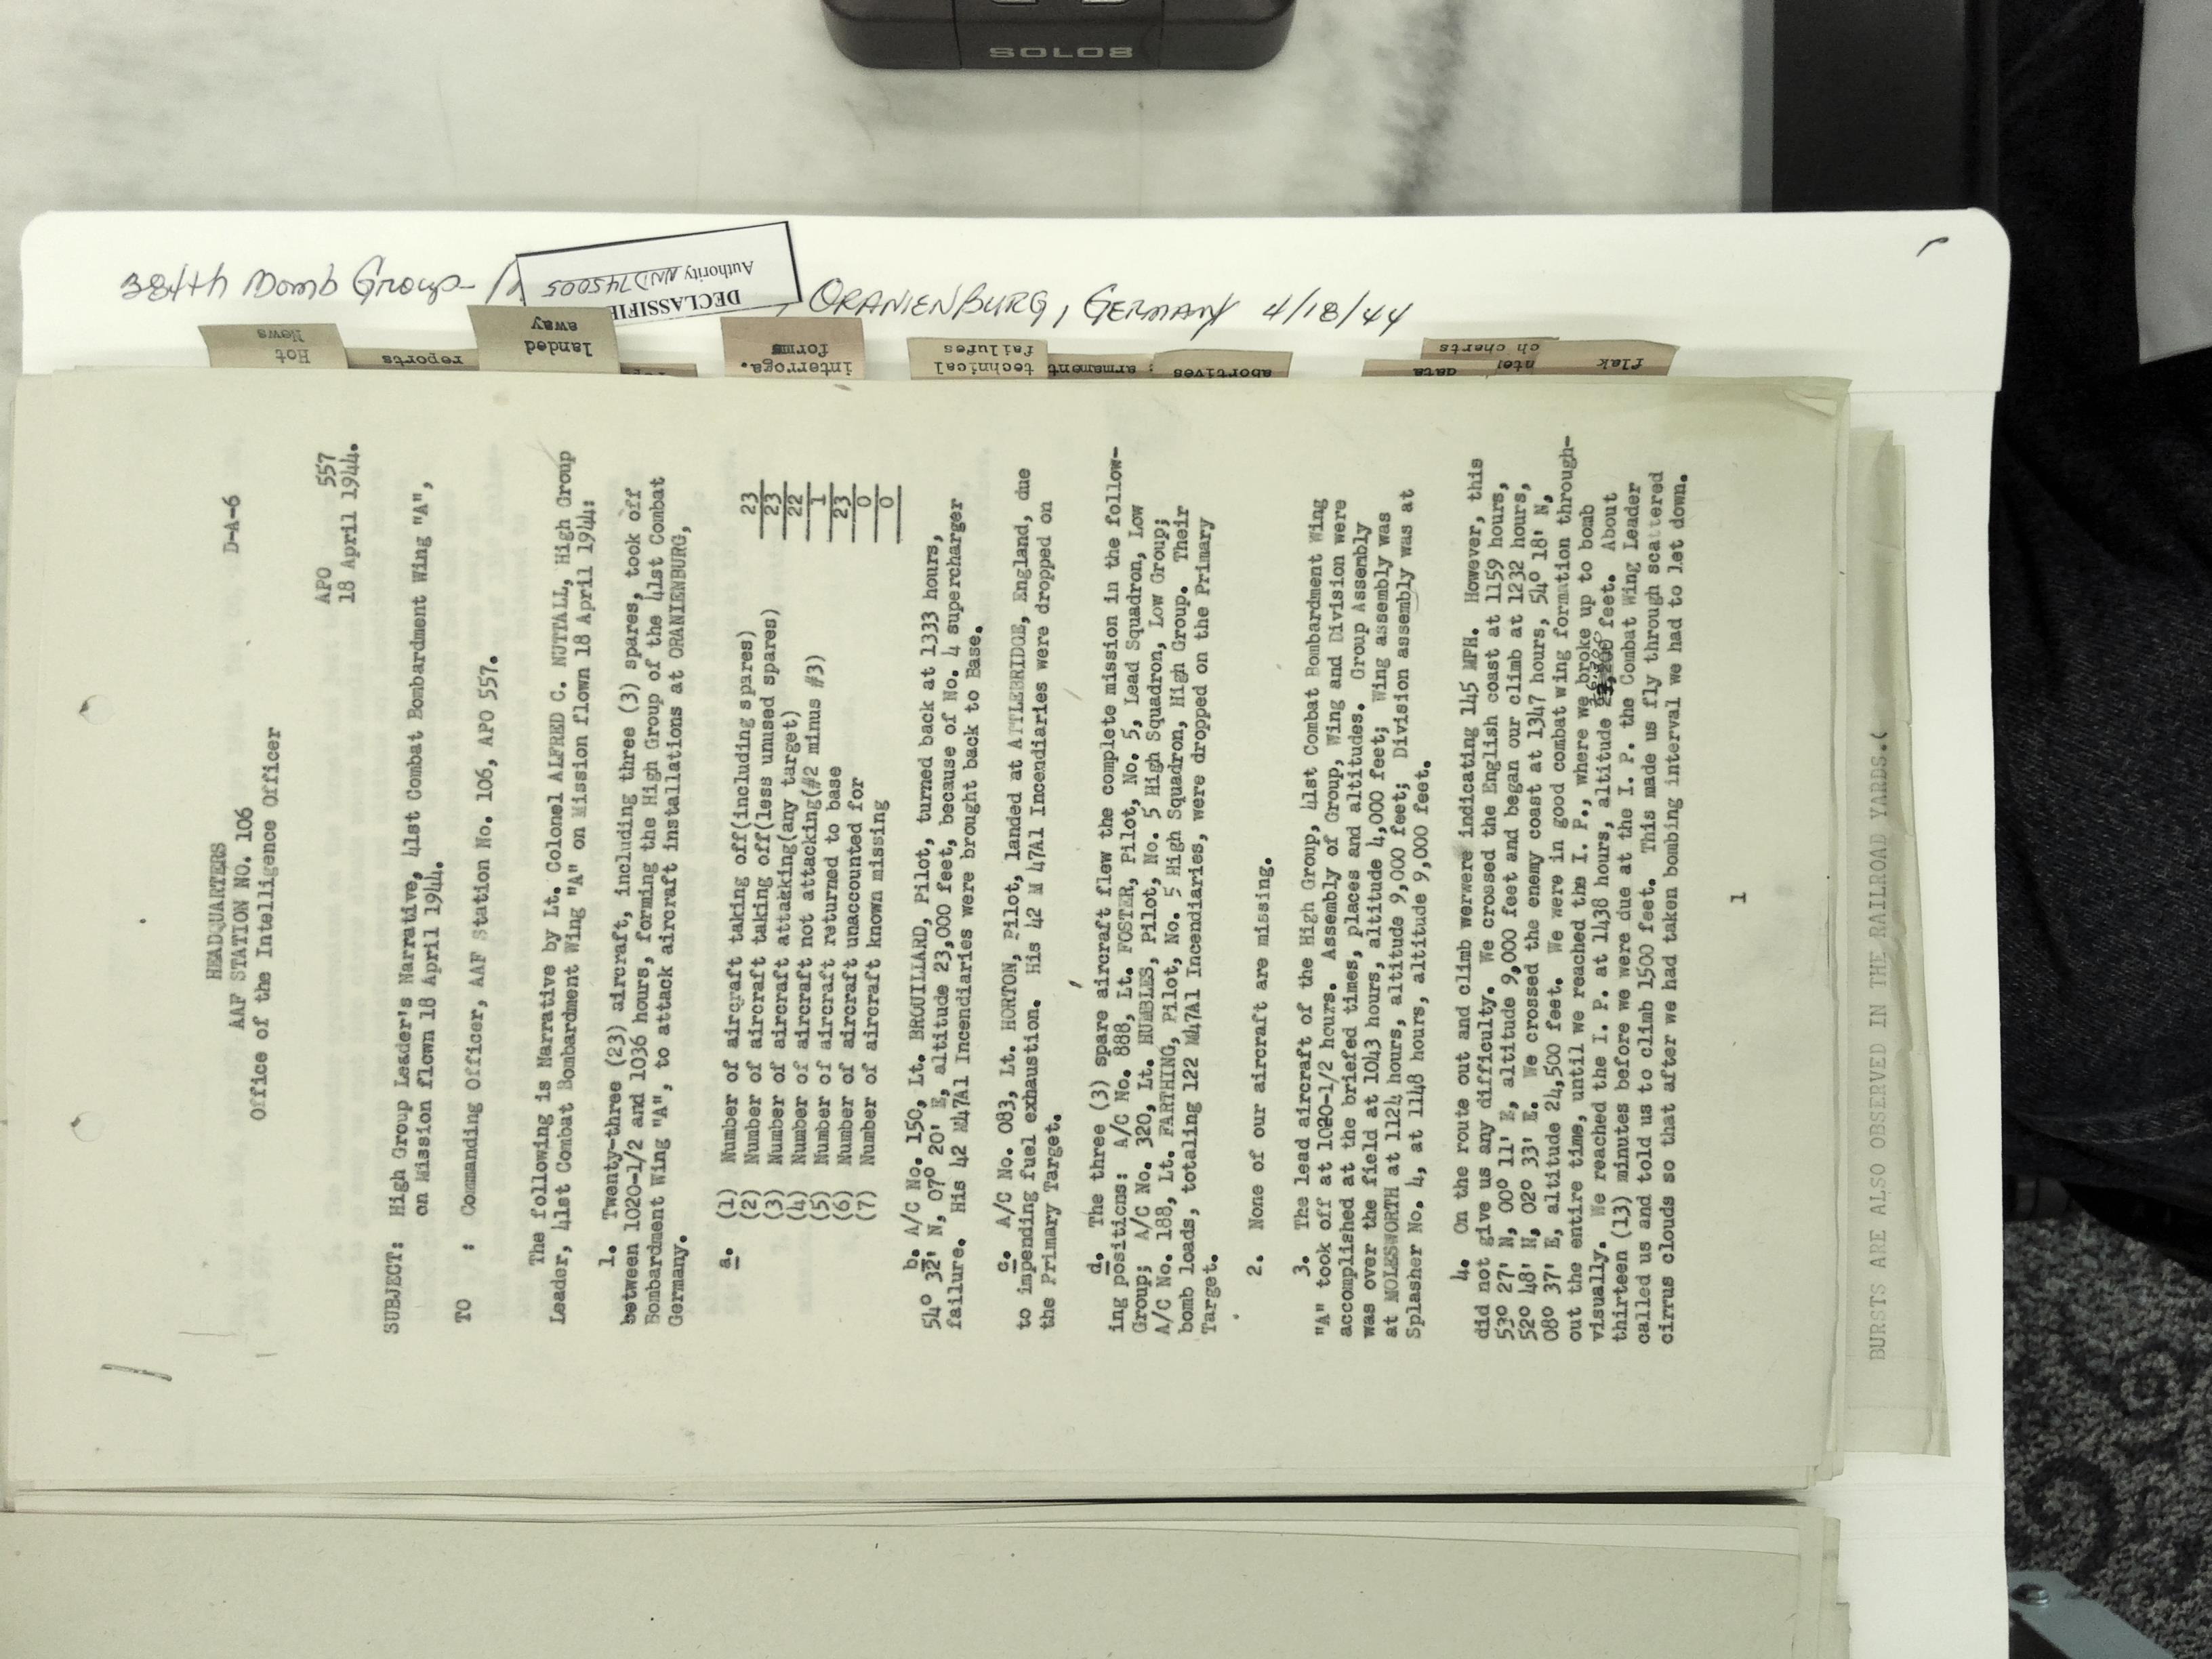 SOLO8
384th Bomb Group-
DECLASSIFIE
Authority NND 745005
ORANIENBURG, GERMANY 4/18/44
Hot
News
reports
landed
away
interroga.
forms
technical
failures
armament
abortives
data
ch charts
flak
HEADQUARTERS D-A-6
AAF STATION NO. 106
Office of the Intelligence Officer
APO 557
18 April 1944.
SUBJECT: High Group Leader's Narrative, 41st Combat Bombardment Wing "A",
on Mission flown 18 April 1944.
TO : Commanding Officer, AAF Station No. 106, APO 557.
The following is Narrative by Lt. Colonel ALFRED C. NUTTALL, High Group
Leader, 41st Combat Bombardment Wing "A" on Mission flown 18 April 1944:
1. Twenty-three (23) aircraft, including three (3) spares, took off
between 1020-1/2 and 1036 hours, forming the High Group of the 41st Combat
Bombardment Wing "A", to attack aircraft installations at ORANIENBURG,
Germany.
a. (1) Number of aircraft taking off(including spares) 23
(2) Number of aircraft taking off(less unused spares) 23
(3) Number of aircraft attakking(any target) 22
(4) Number of aircraft not attacking(#2 minus #3) 1
(5) Number of aircraft returned to base 23
(6) Number of aircraft unaccounted for 0
(7) Number of aircraft known missing 0
b. A/C No. 150, Lt. BROUILLARD, Pilot, turned back at 1333 hours,
54° 32' N, 07° 20' E, altitude 23,000 feet, because of No. 4 supercharger
failure. His 42 M47A1 Incendiaries were brought back to Base.
c. A/C No. 083, Lt. HORTON, Pilot, landed at ATTLEBRIDGE, England, due
to impending fuel exhaustion. His 42 M 47A1 Incendiaries were dropped on
the Primary Target.
d. The three (3) spare aircraft flew the complete mission in the follow-
ing positions: A/C No. 888, Lt. FOSTER, Pilot, No. 5, Lead Squadron, Low
Group; A/C No. 320, Lt. HUMBLES, Pilot, No. 5 High Squadron, Low Group;
A/C No. 188, Lt. FARTHING, Pilot, No. 5 High Squadron, High Group. Their
bomb loads, totaling 122 M47A1 Incendiaries, were dropped on the Primary
Target.
2. None of our aircraft are missing.
3. The lead aircraft of the High Group, 41st Combat Bombardment Wing
"A" took off at 1020-1/2 hours. Assembly of Group, Wing and Division were
accomplished at the briefed times, places and altitudes. Group Assembly
was over the field at 1043 hours, altitude 4,000 feet; Wing assembly was
at MOLESWORTH at 1124 hours, altitude 9,000 feet; Division assembly was at
Splasher No. 4, at 1148 hours, altitude 9,000 feet.
4. On the route out and climb werwere indicating 145 MPH. However, this
did not give us any difficulty. We crossed the English coast at 1159 hours,
53° 27' N, 00° 11' E, altitude 9,000 feet and began our climb at 1232 hours,
52° 48' N, 02° 33' E. We crossed the enemy coast at 1347 hours, 54° 18' N,
08° 37' E, altitude 24,500 feet. We were in good combat wing formation through-
out the entire time, until we reached the I. P., where we broke up to bomb
visually. We reached the I. P. at 1438 hours, altitude feet. About
thirteen (13) minutes before we were due at the I. P. the Combat Wing Leader
called us and told us to climb 1500 feet. This made us fly through scattered
cirrus clouds so that after we had taken bombing interval we had to let down.
1
BURSTS ARE ALSO OBSERVED IN THE RAILROAD YARDS.(